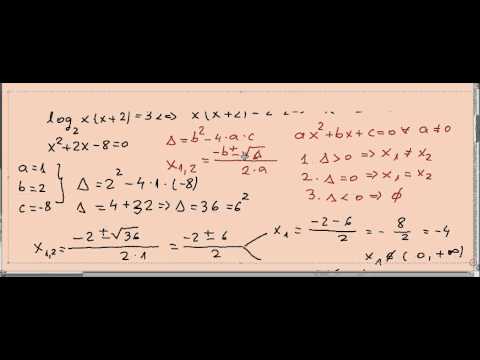 log₂ x(x+2)=3 ⇔ x(x+2)=2
x²+2x-8=0
Δ=b²-4·a·c
x₁,₂=(-b±√Δ)/(2·a)
ax²+bx+c=0 ∨ a≠0
1. Δ>0 ⇒ x₁≠x₂
2. Δ=0 ⇒ x₁=x₂
3. Δ<0 ⇒ ∅
a=1
b=2
c=-8
Δ=2²-4·1·(-8)
Δ=4+32 ⇒ Δ=36=6²
x₁,₂=(-2±√36)/(2·1)=(-2±6)/2
x₁=(-2-6)/2=-8/2=-4
x₁∉(0,+∞)